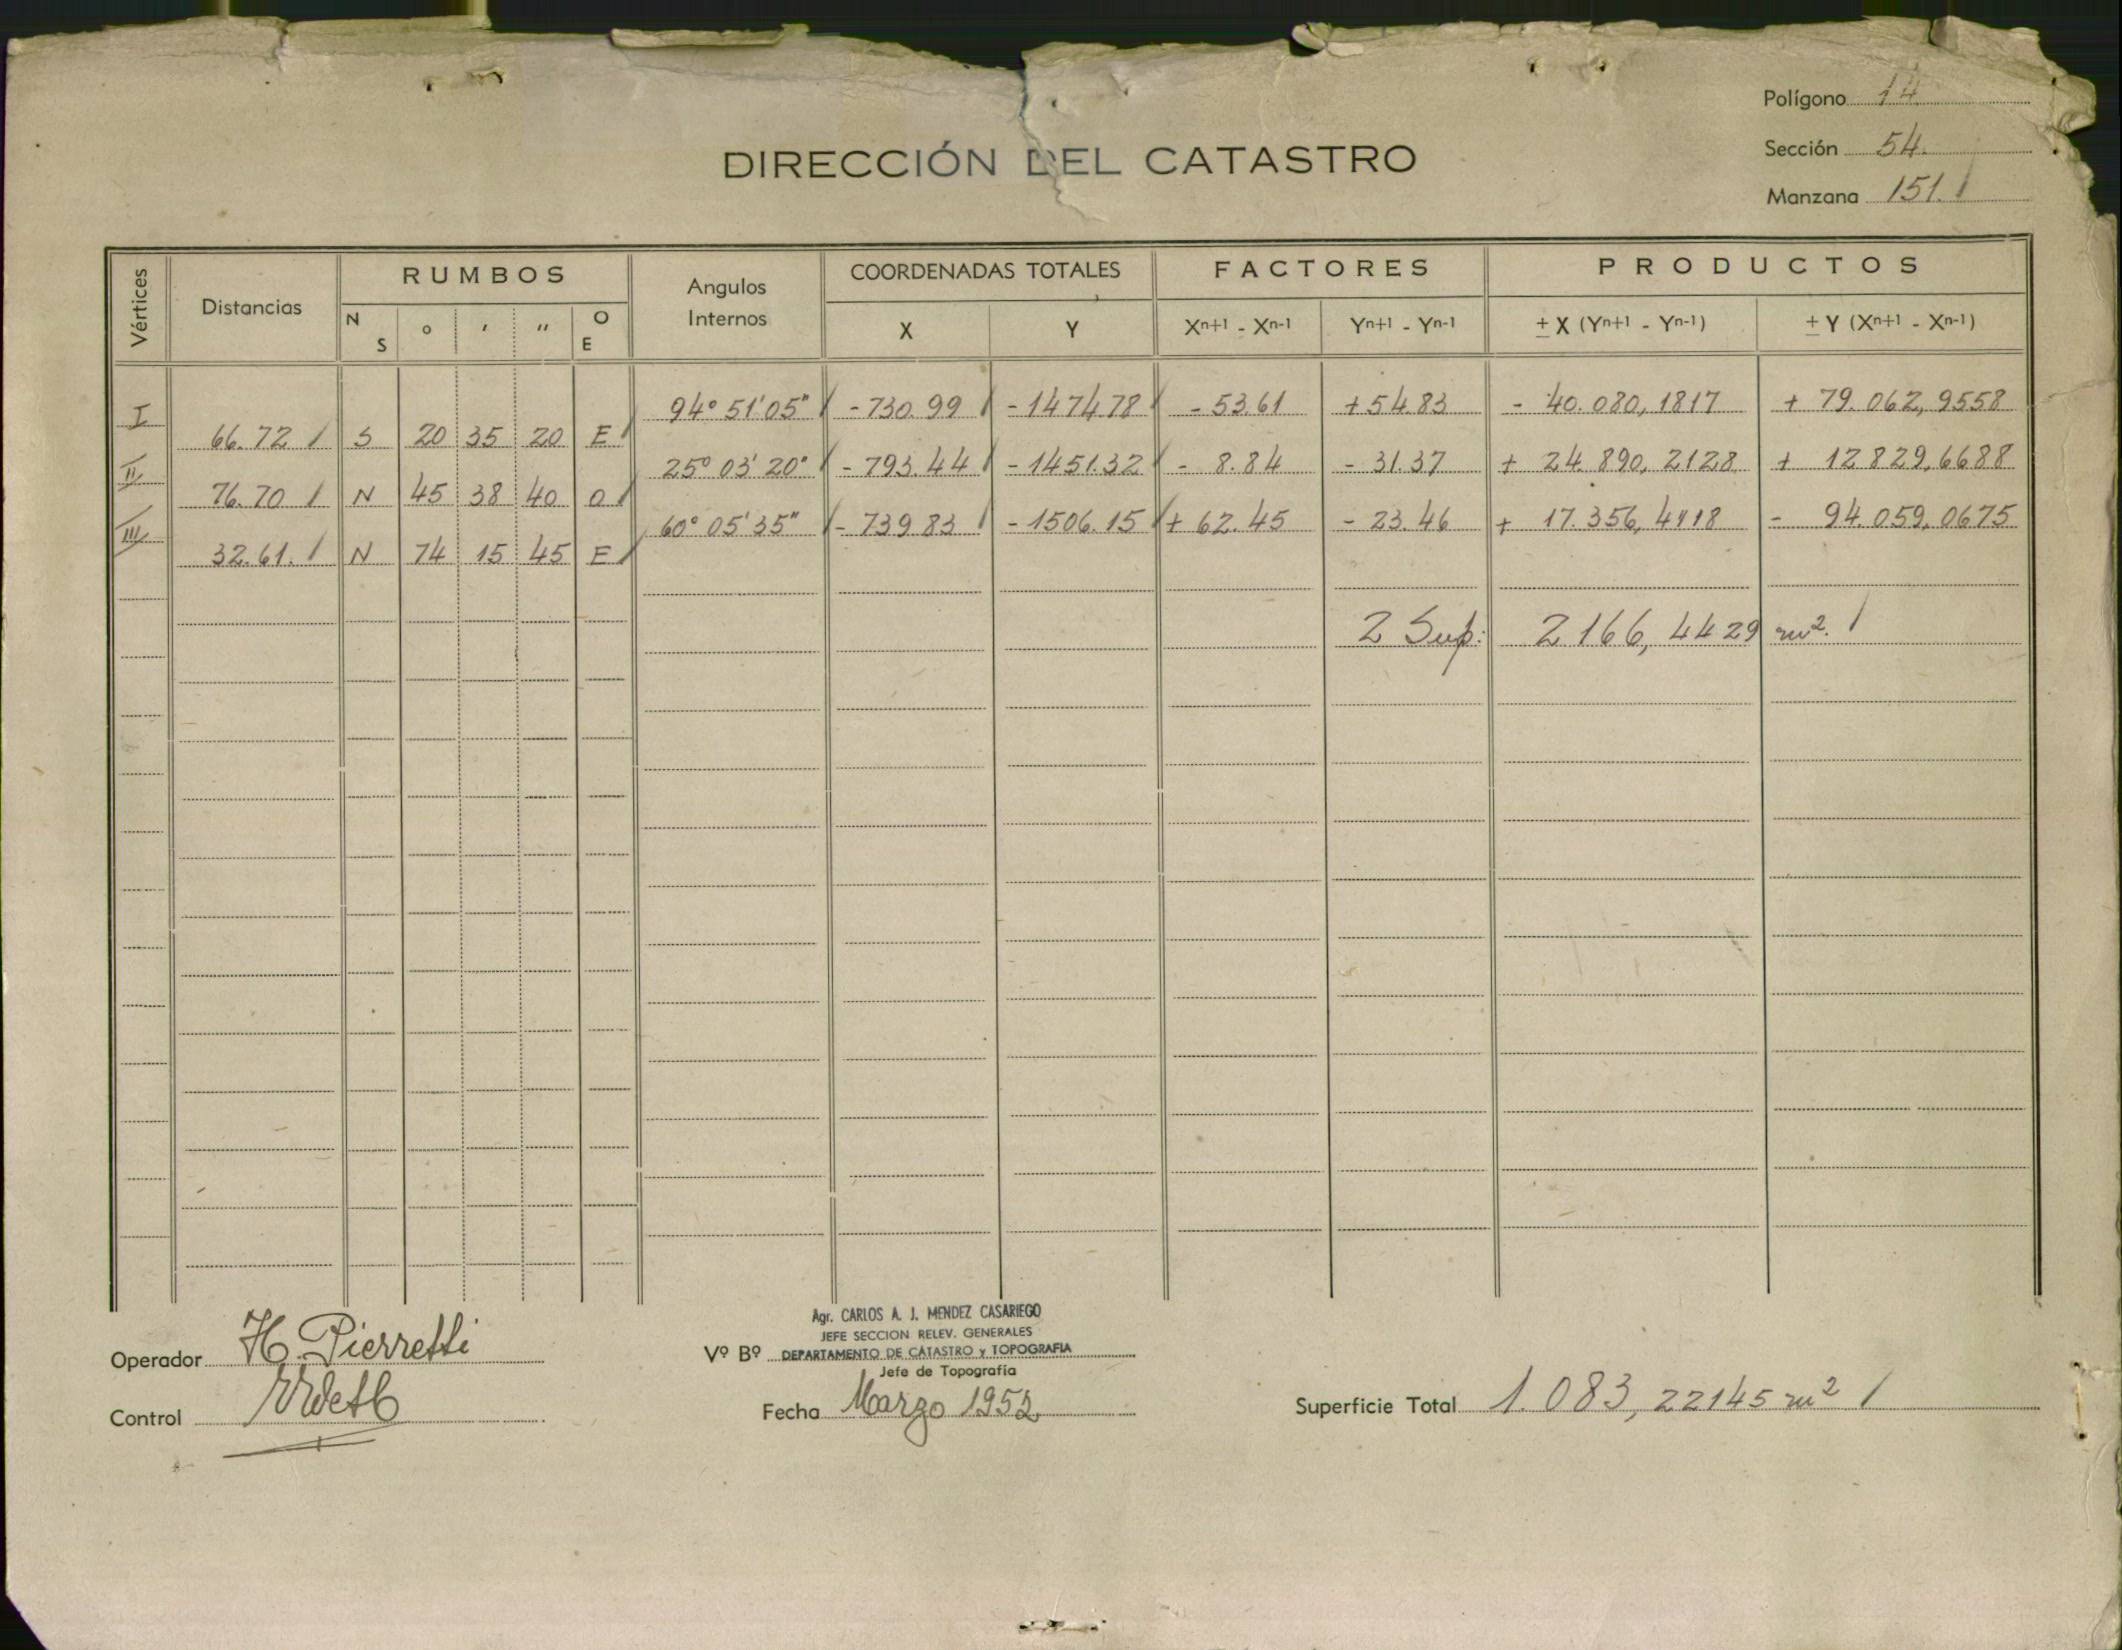 Polígono 14
Sección 54.
Manzana 151.
DIRECCIÓN DEL CATASTRO
Vértices Distancias RUMBOS Angulos Internos COORDENADAS TOTALES FACTORES PRODUCTOS
N S ° ′ ″ O E X Y Xn+1 - Xn-1 Yn+1 - Yn-1 ± X (Yn+1 - Yn-1) ± Y (Xn+1 - Xn-1)
I 94° 51' 05" -730.99 -1474.78 -53.61 +54.83 - 40.080,1817 + 79.062,9558
66.72 S 20 35 20 E
II 25° 03' 20" -793.44 -1451.32 - 8.84 - 31.37 + 24.890,2128 + 12829,6688
76.70 N 45 38 40 O
III 60° 05' 35" -739.83 -1506.15 + 62.45 - 23.46 + 17.356,4118 - 94.059,0675
32.61. N 74 15 45 E
2 Sup: 2166,4429 m².
Agr. CARLOS A. J. MENDEZ CASARIEGO
JEFE SECCION RELEV. GENERALES
Operador H. Pierretti Vº Bº DEPARTAMENTO DE CATASTRO y TOPOGRAFIA
Jefe de Topografía
Control Fecha Marzo 1952 Superficie Total 1.083,22145 m²